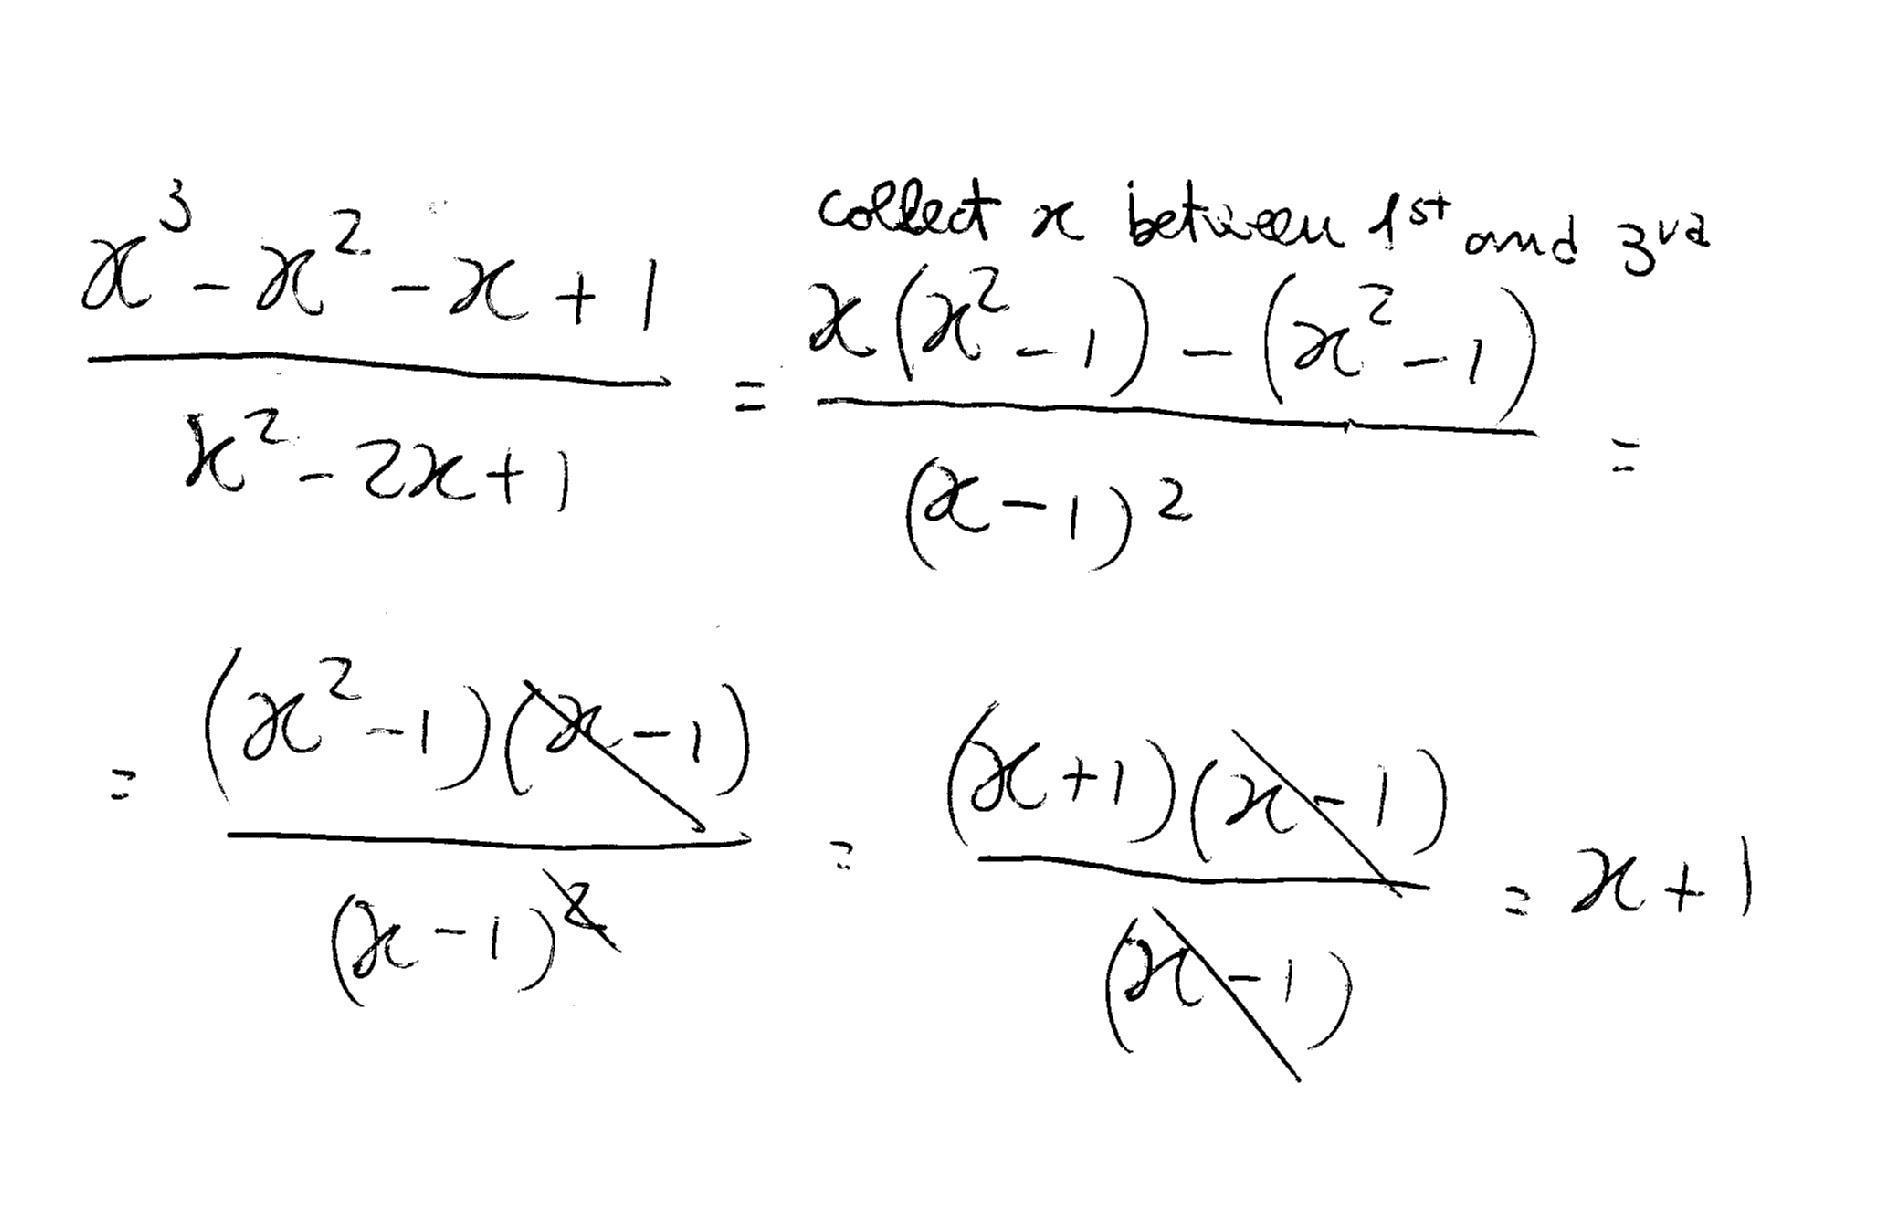 collect x between 1st and 3rd
(x³ - x² - x + 1)/(x² - 2x + 1) = (x(x² - 1) - (x² - 1))/((x - 1)²) =
= ((x² - 1)(x - 1))/((x - 1)²) = ((x + 1)(x - 1))/((x - 1)) = x + 1